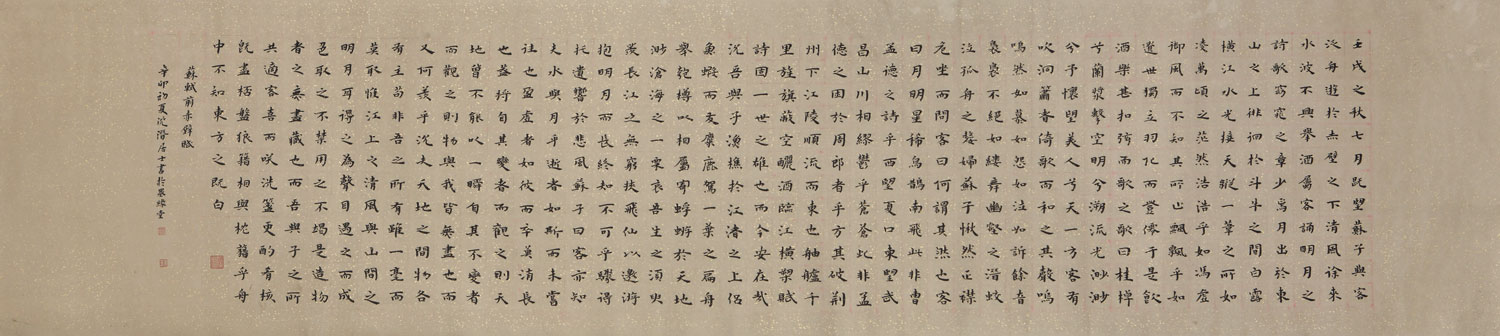 壬戌之秋七月既望蘇子與客
泛舟遊於赤壁之下清風徐來
水波不興舉酒屬客誦明月之
詩歌窈窕之章少焉月出於東
山之上徘徊於斗牛之間白露
橫江水光接天縱一葦之所如
凌萬頃之茫然浩浩乎如馮虛
御風而不知其所止飄飄乎如
遺世獨立羽化而登僊于是飲
酒樂甚扣舷而歌之歌曰桂棹
兮蘭槳擊空明兮溯流光渺渺
兮予懷望美人兮天一方客有
吹洞簫者倚歌而和之其聲嗚
嗚然如慕如怨如泣如訴餘音
裊裊不絕如縷舞幽壑之潛蛟
泣孤舟之嫠婦蘇子愀然正襟
危坐而問客曰何謂其然也客
曰月明星稀烏鵲南飛此非曹
孟德之詩乎西望夏口東望武
昌山川相繆鬱乎蒼蒼此非孟
德之困於周郎者乎方其破荊
州下江陵順流而東也舳艫千
里旌旗蔽空釃酒臨江橫槊賦
詩固一世之雄也而今安在哉
況吾與子漁樵於江渚之上侶
魚蝦而友麋鹿駕一葉之扁舟
舉匏樽以相屬寄蜉蝣於天地
渺滄海之一粟哀吾生之須臾
羨長江之無窮挾飛仙以遨遊
抱明月而長終知不可乎驟得
托遺響於悲風蘇子曰客亦知
夫水與月乎逝者如斯而未嘗
往也盈虛者如彼而卒莫消長
也蓋將自其變者而觀之則天
地曾不能以一瞬自其不變者
而觀之則物與我皆無盡也而
又何羨乎況夫天地之間物各
有主苟非吾之所有雖一毫而
莫取惟江上之清風與山間之
明月耳得之為聲目遇之而成
色取之不禁用之不竭是造物
者之無盡藏也而吾與子之所
共適客喜而笑洗盞更酌肴核
既盡杯盤狼籍相與枕籍乎舟
中不知東方之既白
蘇軾前赤壁賦
辛卯初夏沈潛居士書於緣堂